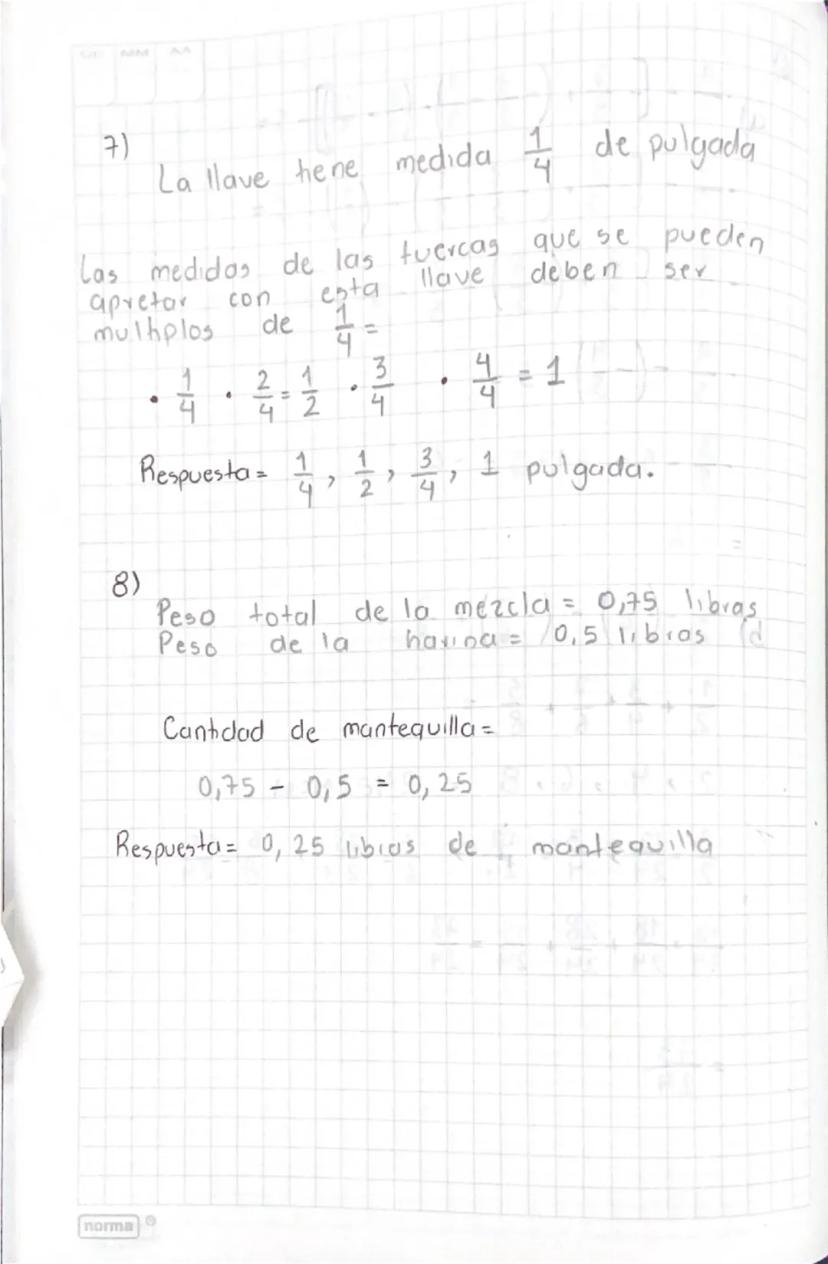 7)
La llave tiene medida 1/4 de pulgada
Las medidas de las tuercas que se pueden
apretar con esta llave deben ser
multiplos de 1/4 =
· 1/4 · 2/4 = 1/2 · 3/4 · 4/4 = 1
Respuesta = 1/4, 1/2, 3/4, 1 pulgada.
8)
Peso total de la mezcla = 0,75 libras
Peso de la harina = 0,5 libras
Cantidad de mantequilla =
0,75 - 0,5 = 0,25
Respuesta = 0,25 libras de mantequilla
norma